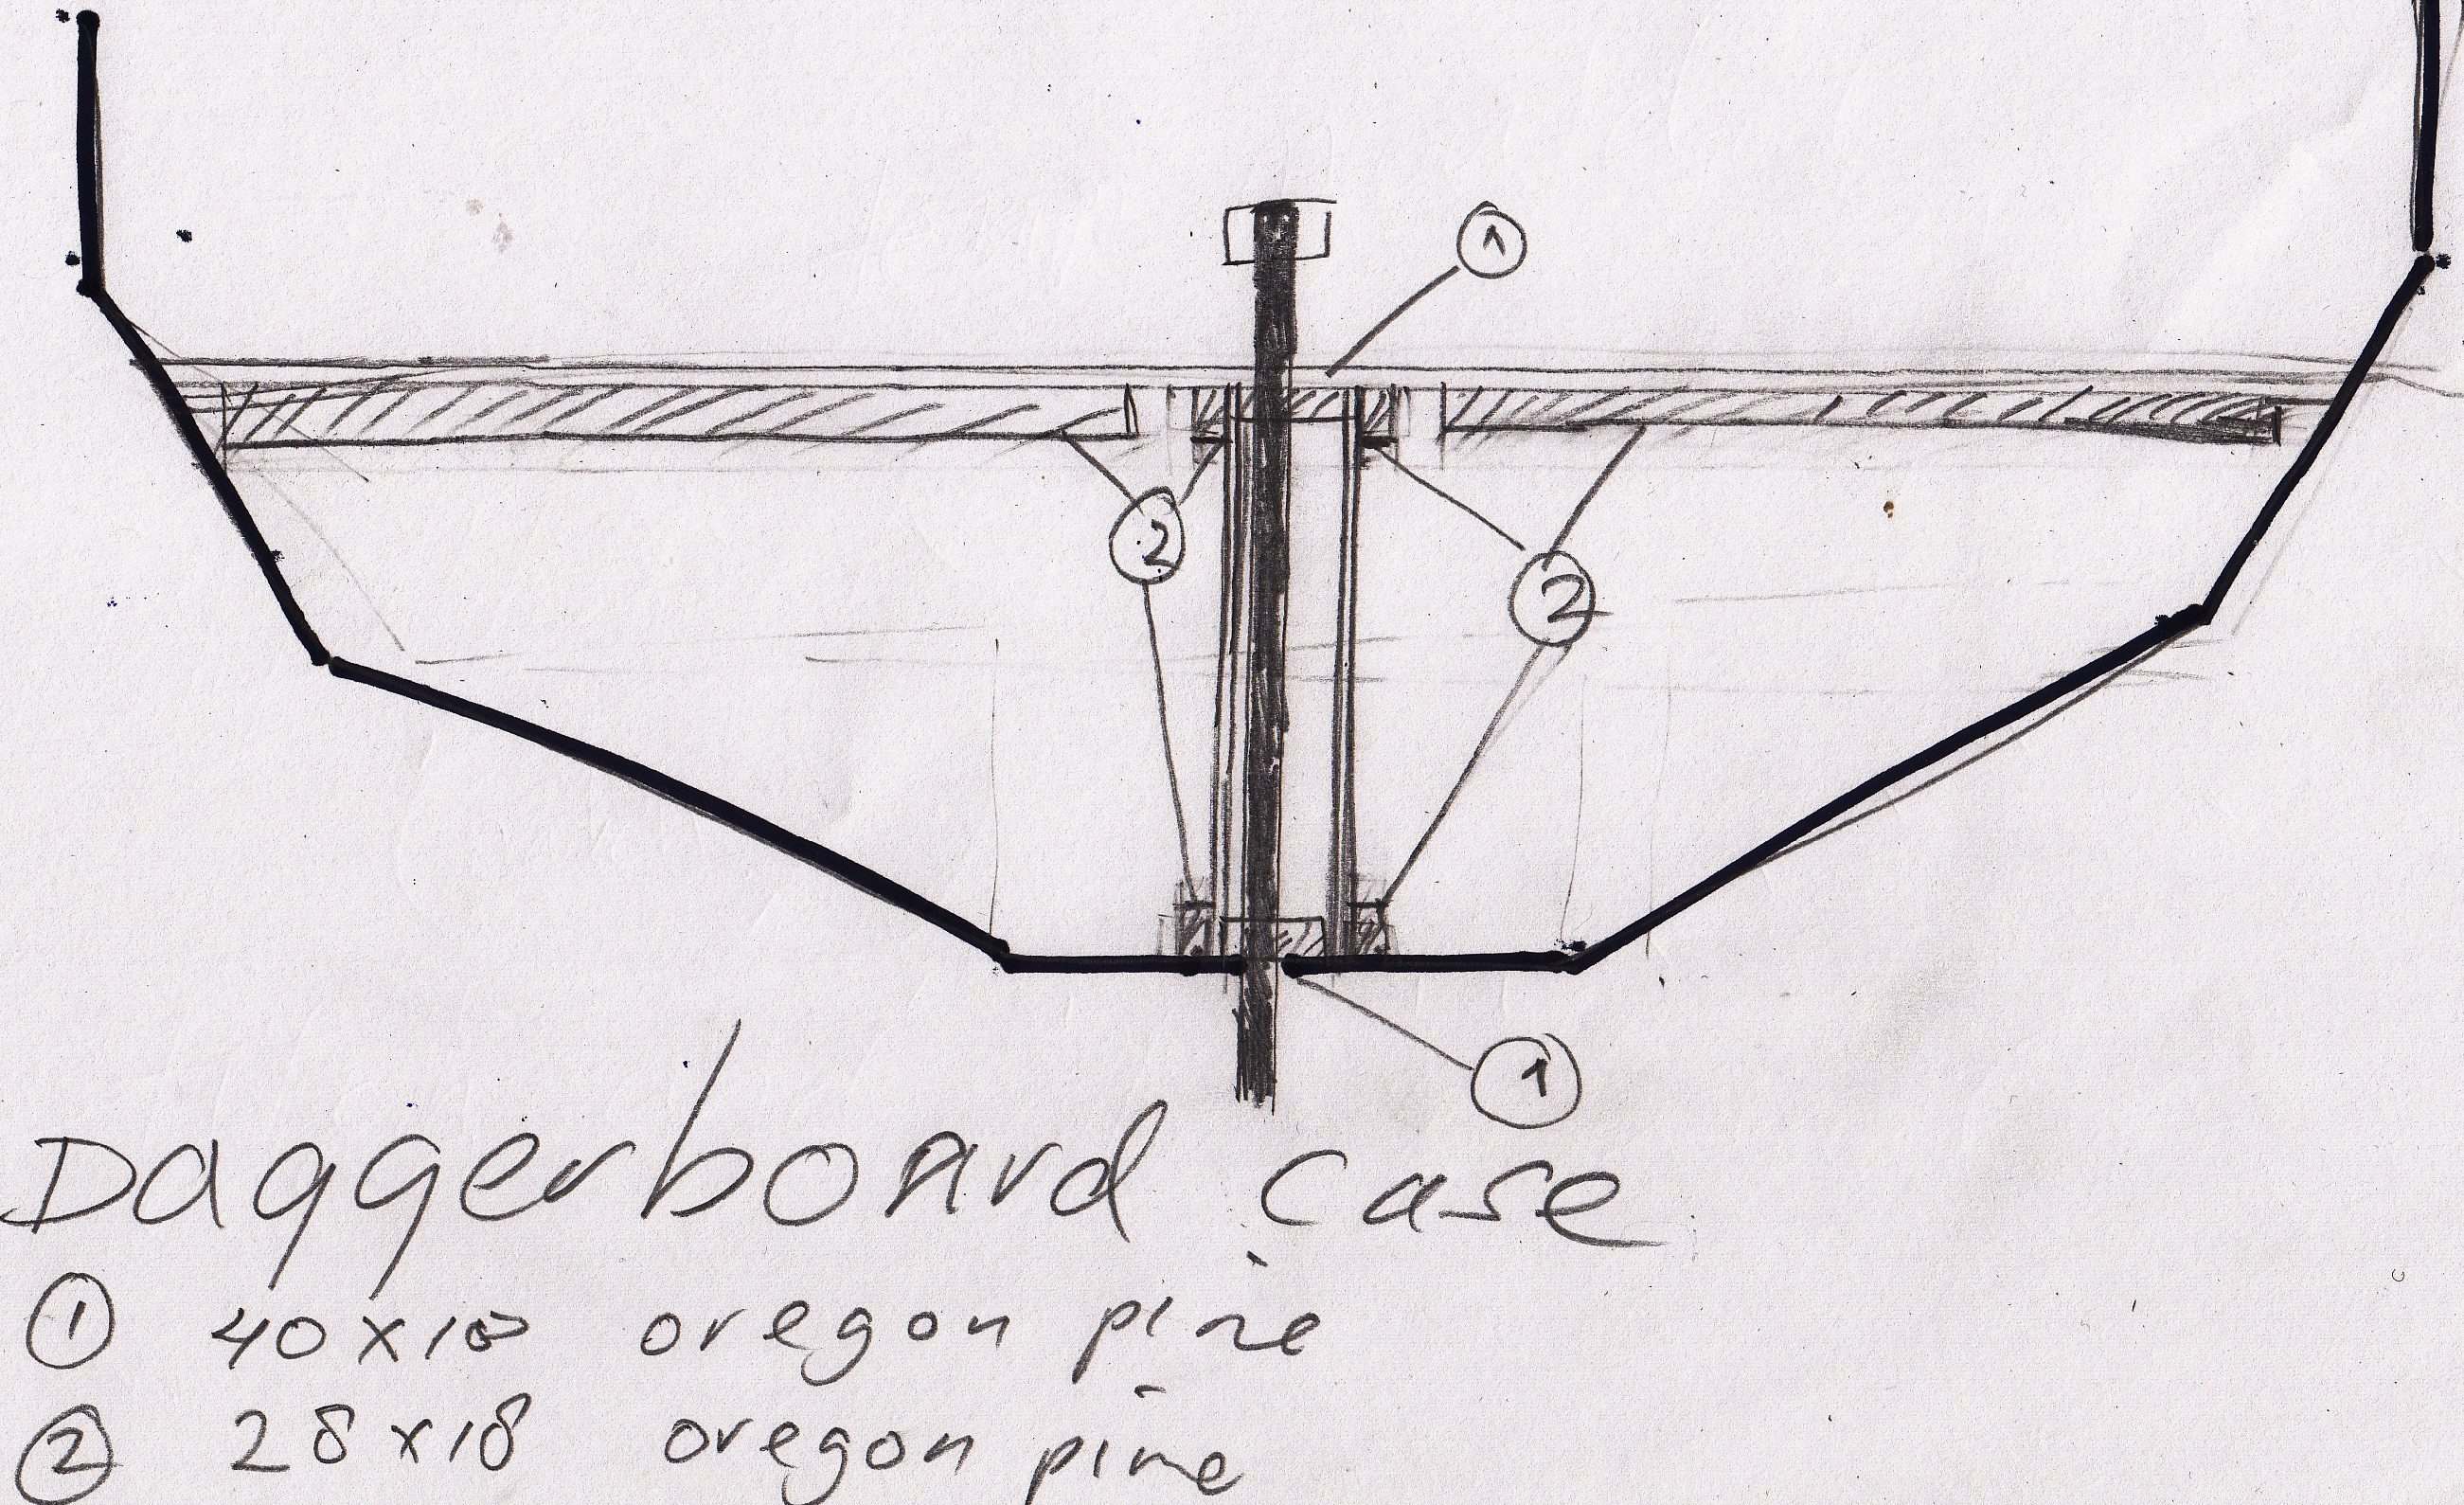 1
2
2
1
Daggerboard case
1 40x18 oregon pine
2 28x18 oregon pine